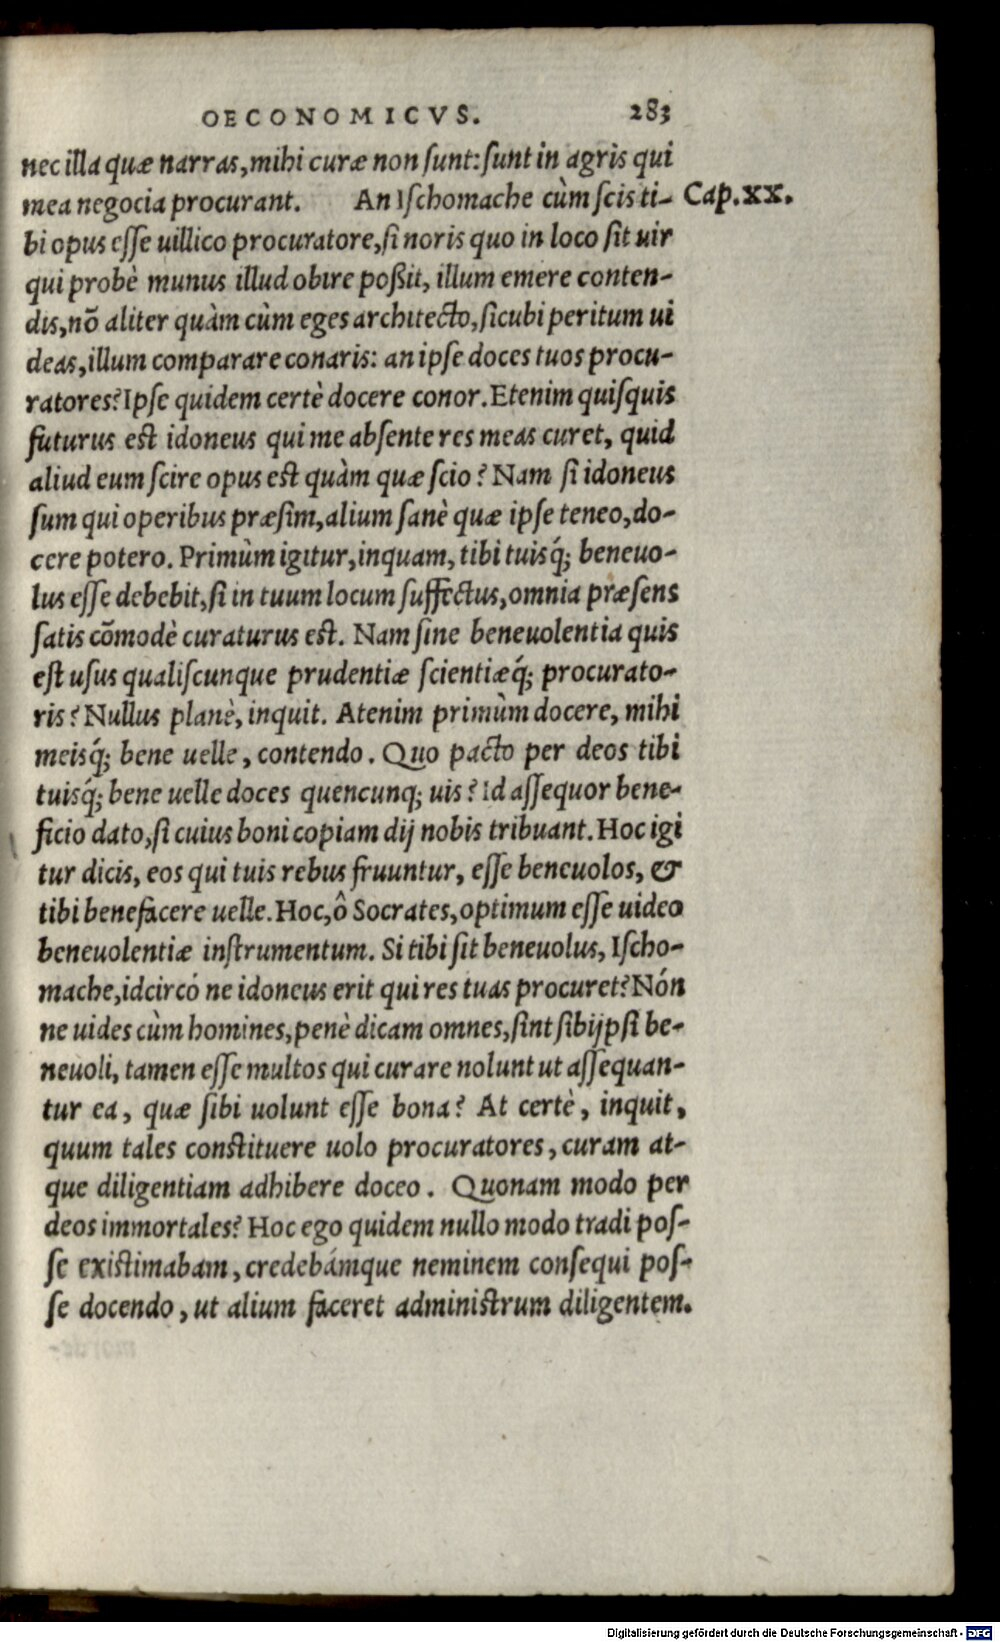 OECONOMICVS. 283
nec illa quæ narras, mihi curæ non ſunt: ſunt in agris qui
mea negocia procurant. An Iſchomache cùm ſcis ti- Cap.XX.
bi opus eſſe uillico procuratore, ſi noris quo in loco ſit uir
qui probè munus illud obire poßit, illum emere conten-
dis, nõ aliter quàm cùm eges architecto, ſicubi peritum ui
deas, illum comparare conaris: an ipſe doces tuos procu-
ratores? Ipſe quidem certè docere conor. Etenim quiſquis
futurus eſt idoneus qui me abſente res meas curet, quid
aliud eum ſcire opus eſt quàm quæ ſcio? Nam ſi idoneus
ſum qui operibus præſim, alium ſanè quæ ipſe teneo, do-
cere potero. Primùm igitur, inquam, tibi tuisq́; beneuo-
lus eſſe debebit, ſi in tuum locum ſuffectus, omnia præſens
ſatis cõmodè curaturus eſt. Nam ſine beneuolentia quis
eſt uſus qualiſcunque prudentiæ ſcientiæq́; procurato-
ris? Nullus planè, inquit. Atenim primùm docere, mihi
meisq́; bene uelle, contendo. Quo pacto per deos tibi
tuisq́; bene uelle doces quencunq; uis? Id aſſequor bene-
ficio dato, ſi cuius boni copiam dij nobis tribuant. Hoc igi
tur dicis, eos qui tuis rebus fruuntur, eſſe beneuolos, &
tibi benefacere uelle. Hoc, ô Socrates, optimum eſſe uideo
beneuolentiæ inſtrumentum. Si tibi ſit beneuolus, Iſcho-
mache, idcircó ne idoneus erit qui res tuas procuret? Nón
ne uides cùm homines, penè dicam omnes, ſint ſibijpſi be-
neuoli, tamen eſſe multos qui curare nolunt ut aſſequan-
tur ea, quæ ſibi uolunt eſſe bona? At certè, inquit,
quum tales conſtituere uolo procuratores, curam at-
que diligentiam adhibere doceo. Quonam modo per
deos immortales? Hoc ego quidem nullo modo tradi poſ-
ſe exiſtimabam, credebámque neminem conſequi poſ-
ſe docendo, ut alium faceret adminiſtrum diligentem.
Digitalisierung gefördert durch die Deutsche Forschungsgemeinschaft - DFG